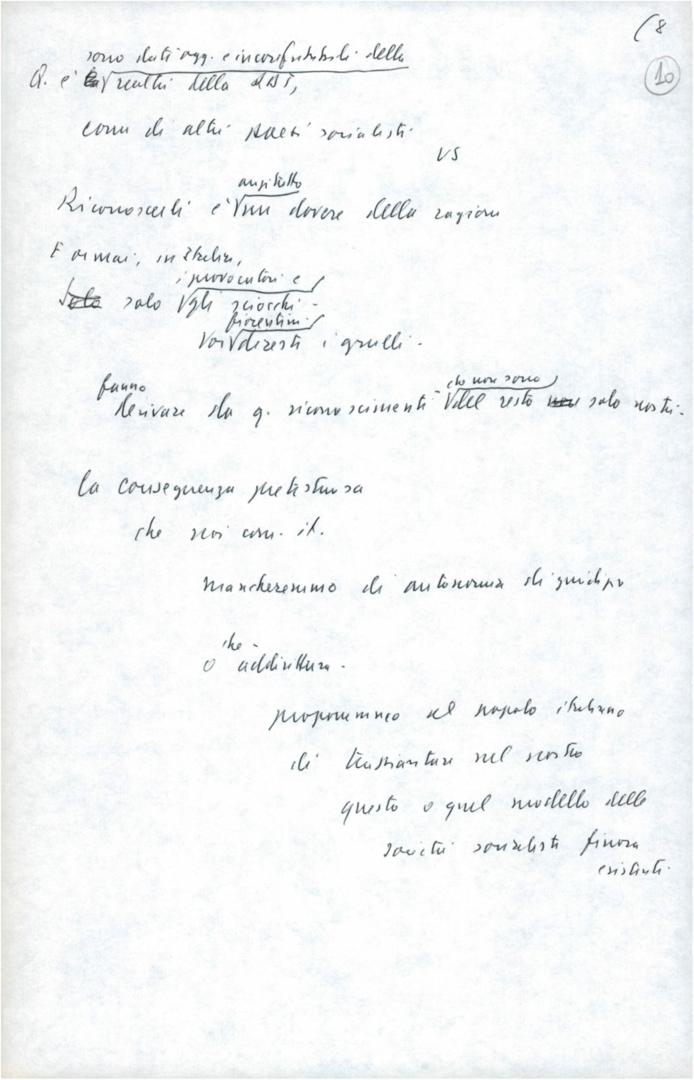 (8
10
sono dati ogg. e inconfutabili della
Q. è realtà della
come di altri stati socialisti
VS
anzitutto
Riconoscerli è un dovere della ragione
E ormai, in Italia,
i provocatori e
solo solo gli sciocchi -
fiorentini
voi diresti i grulli -
fanno che non sono
derivare da q. riconoscimenti - del resto non solo nostri -
la conseguenza pretestuosa
che noi com. it.
mancheremmo di autonomia di giudizio
che -
o addirittura -
proporremmo al popolo italiano
di trapiantare nel nostro
questo o quel modello delle
società socialiste finora
esistenti.